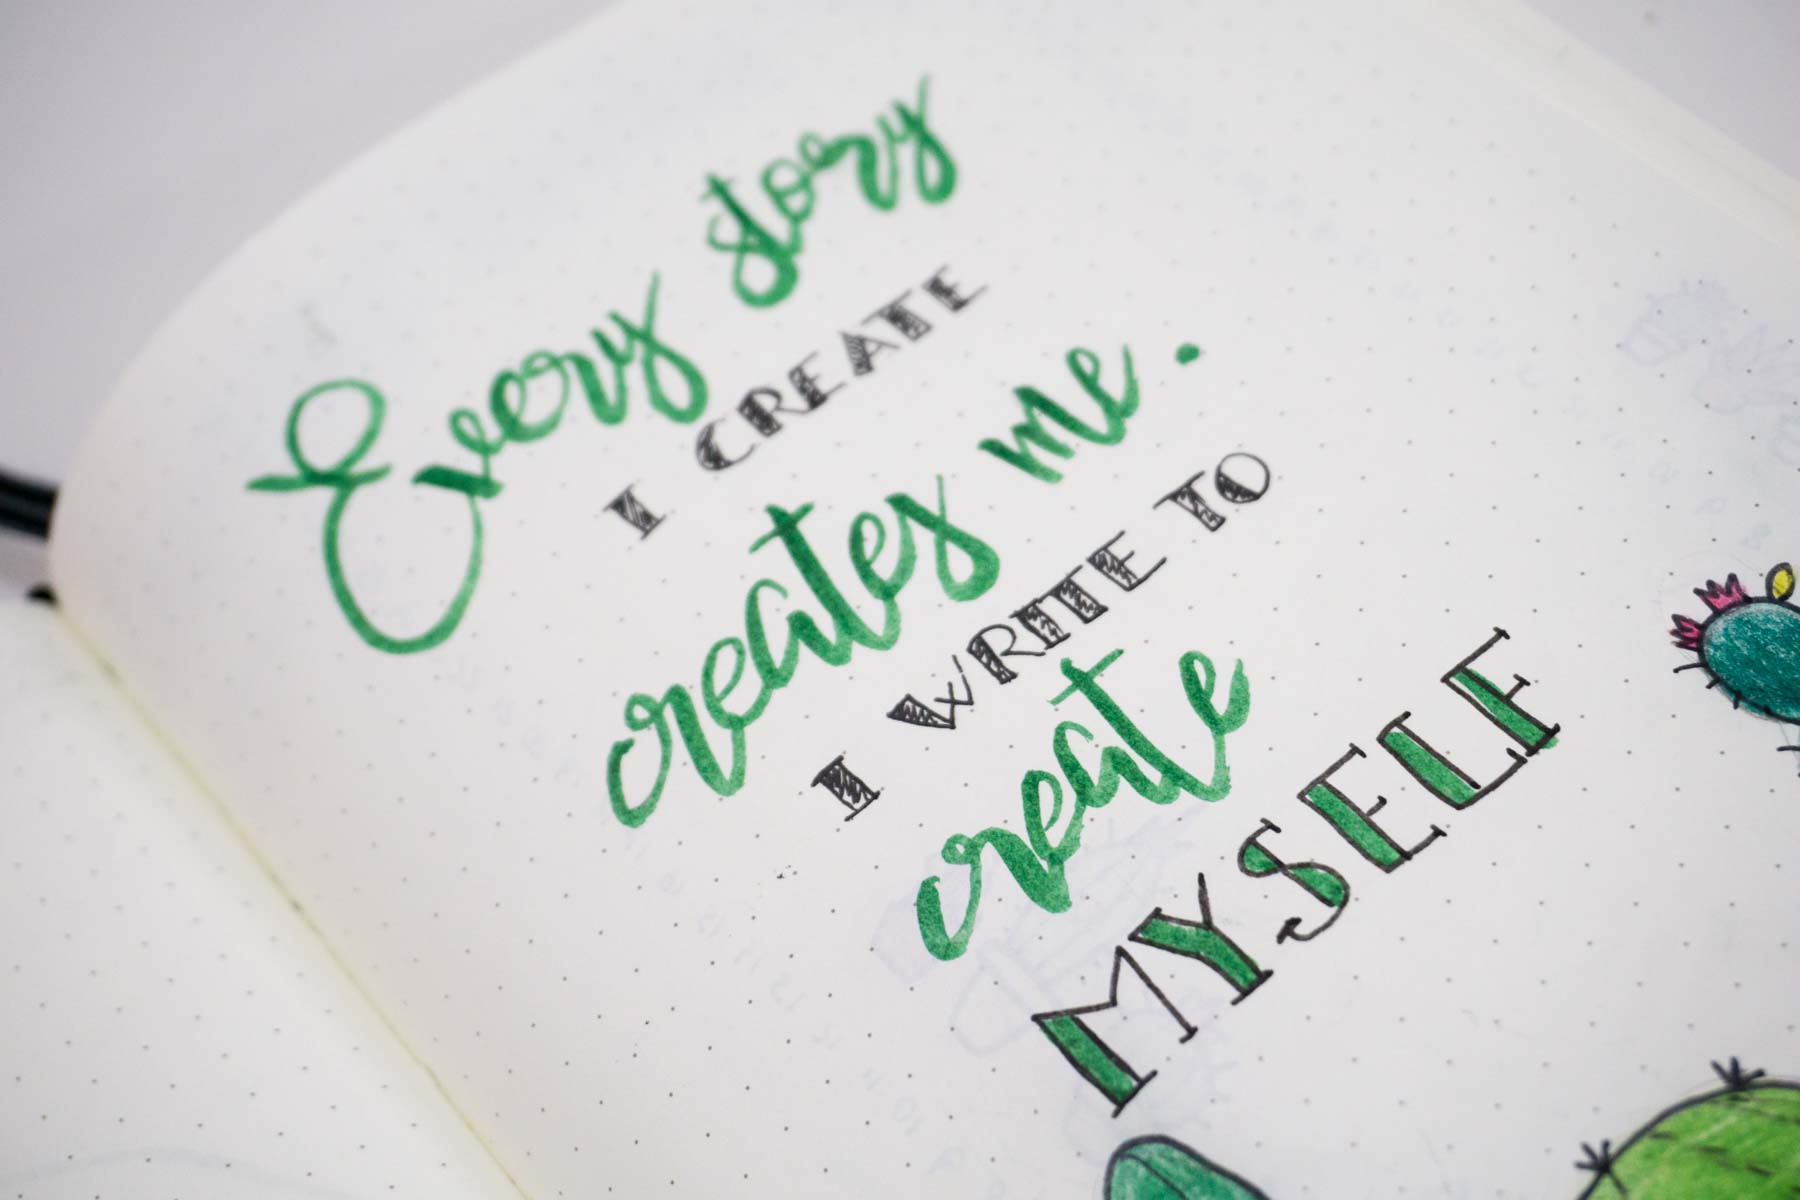 Every story
I CREATE
creates me.
I WRITE TO
create
MYSELF